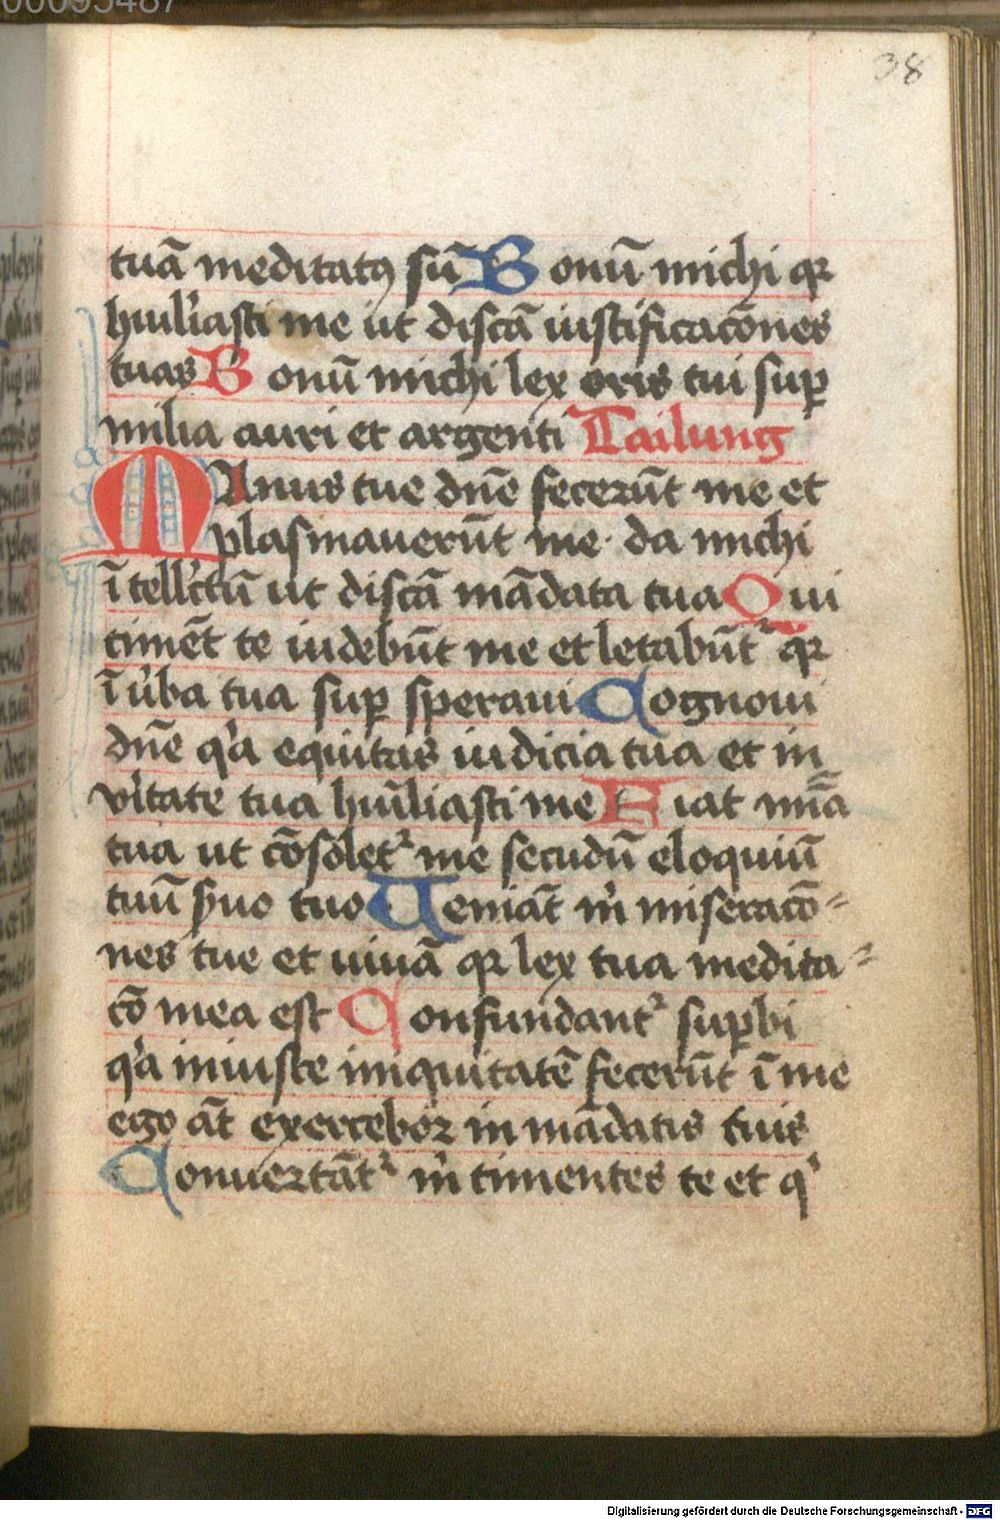 00095487
38
tuā meditatꝰ sū Bonū michi qꝛ
huĩliasti me ut discā iustificacōnes
tuas Bonū michi lex oris tui suꝑ
milia auri et argenti Tailung
MAnus tue dn̄e fecerūt me et
plasmauerūt me· da michi
ītell̾ctū ut discā mādata tua Qui
timēt te uidebūt me et letabūtʳ qꝛ
ī u̾ba tua suꝑ speraui Cognoui
dn̄e qͥa equitas iudicia tua et in
v̾itate tua hūiliasti me Fiat mīa
tua ut cōsoletʳ me secudū eloquiū
tuū s̾uo tuo Ueniāt m̍ miseracō⸗
nes tue et viuā qꝛ lex tua medita⸗
cō mea est Confundantʳ suꝑbi
qͥa iniuste iniquitatē fecerūt ī me
ego āt exercebor in mādatis tuis
Conuertātʳ m̍ timentes te et qͥ
Digitalisierung gefördert durch die Deutsche Forschungsgemeinschaft - DFG